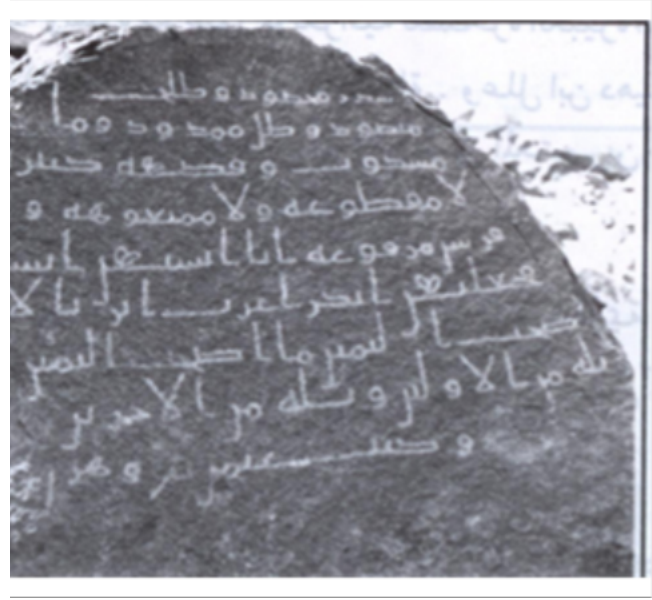 سدر مخضود وطلح
منضود وظل ممدود وما
مسكوب وفكهه كثير
لا مقطوعه ولا ممنوعه و
فرش مرفوعه انا انشانهن انش
فجعلنهن ابكرا عربا اترابا لا
صحب اليمين ما اصحب اليمين
ثله من الاولين وثله من الاخرين
وكتب